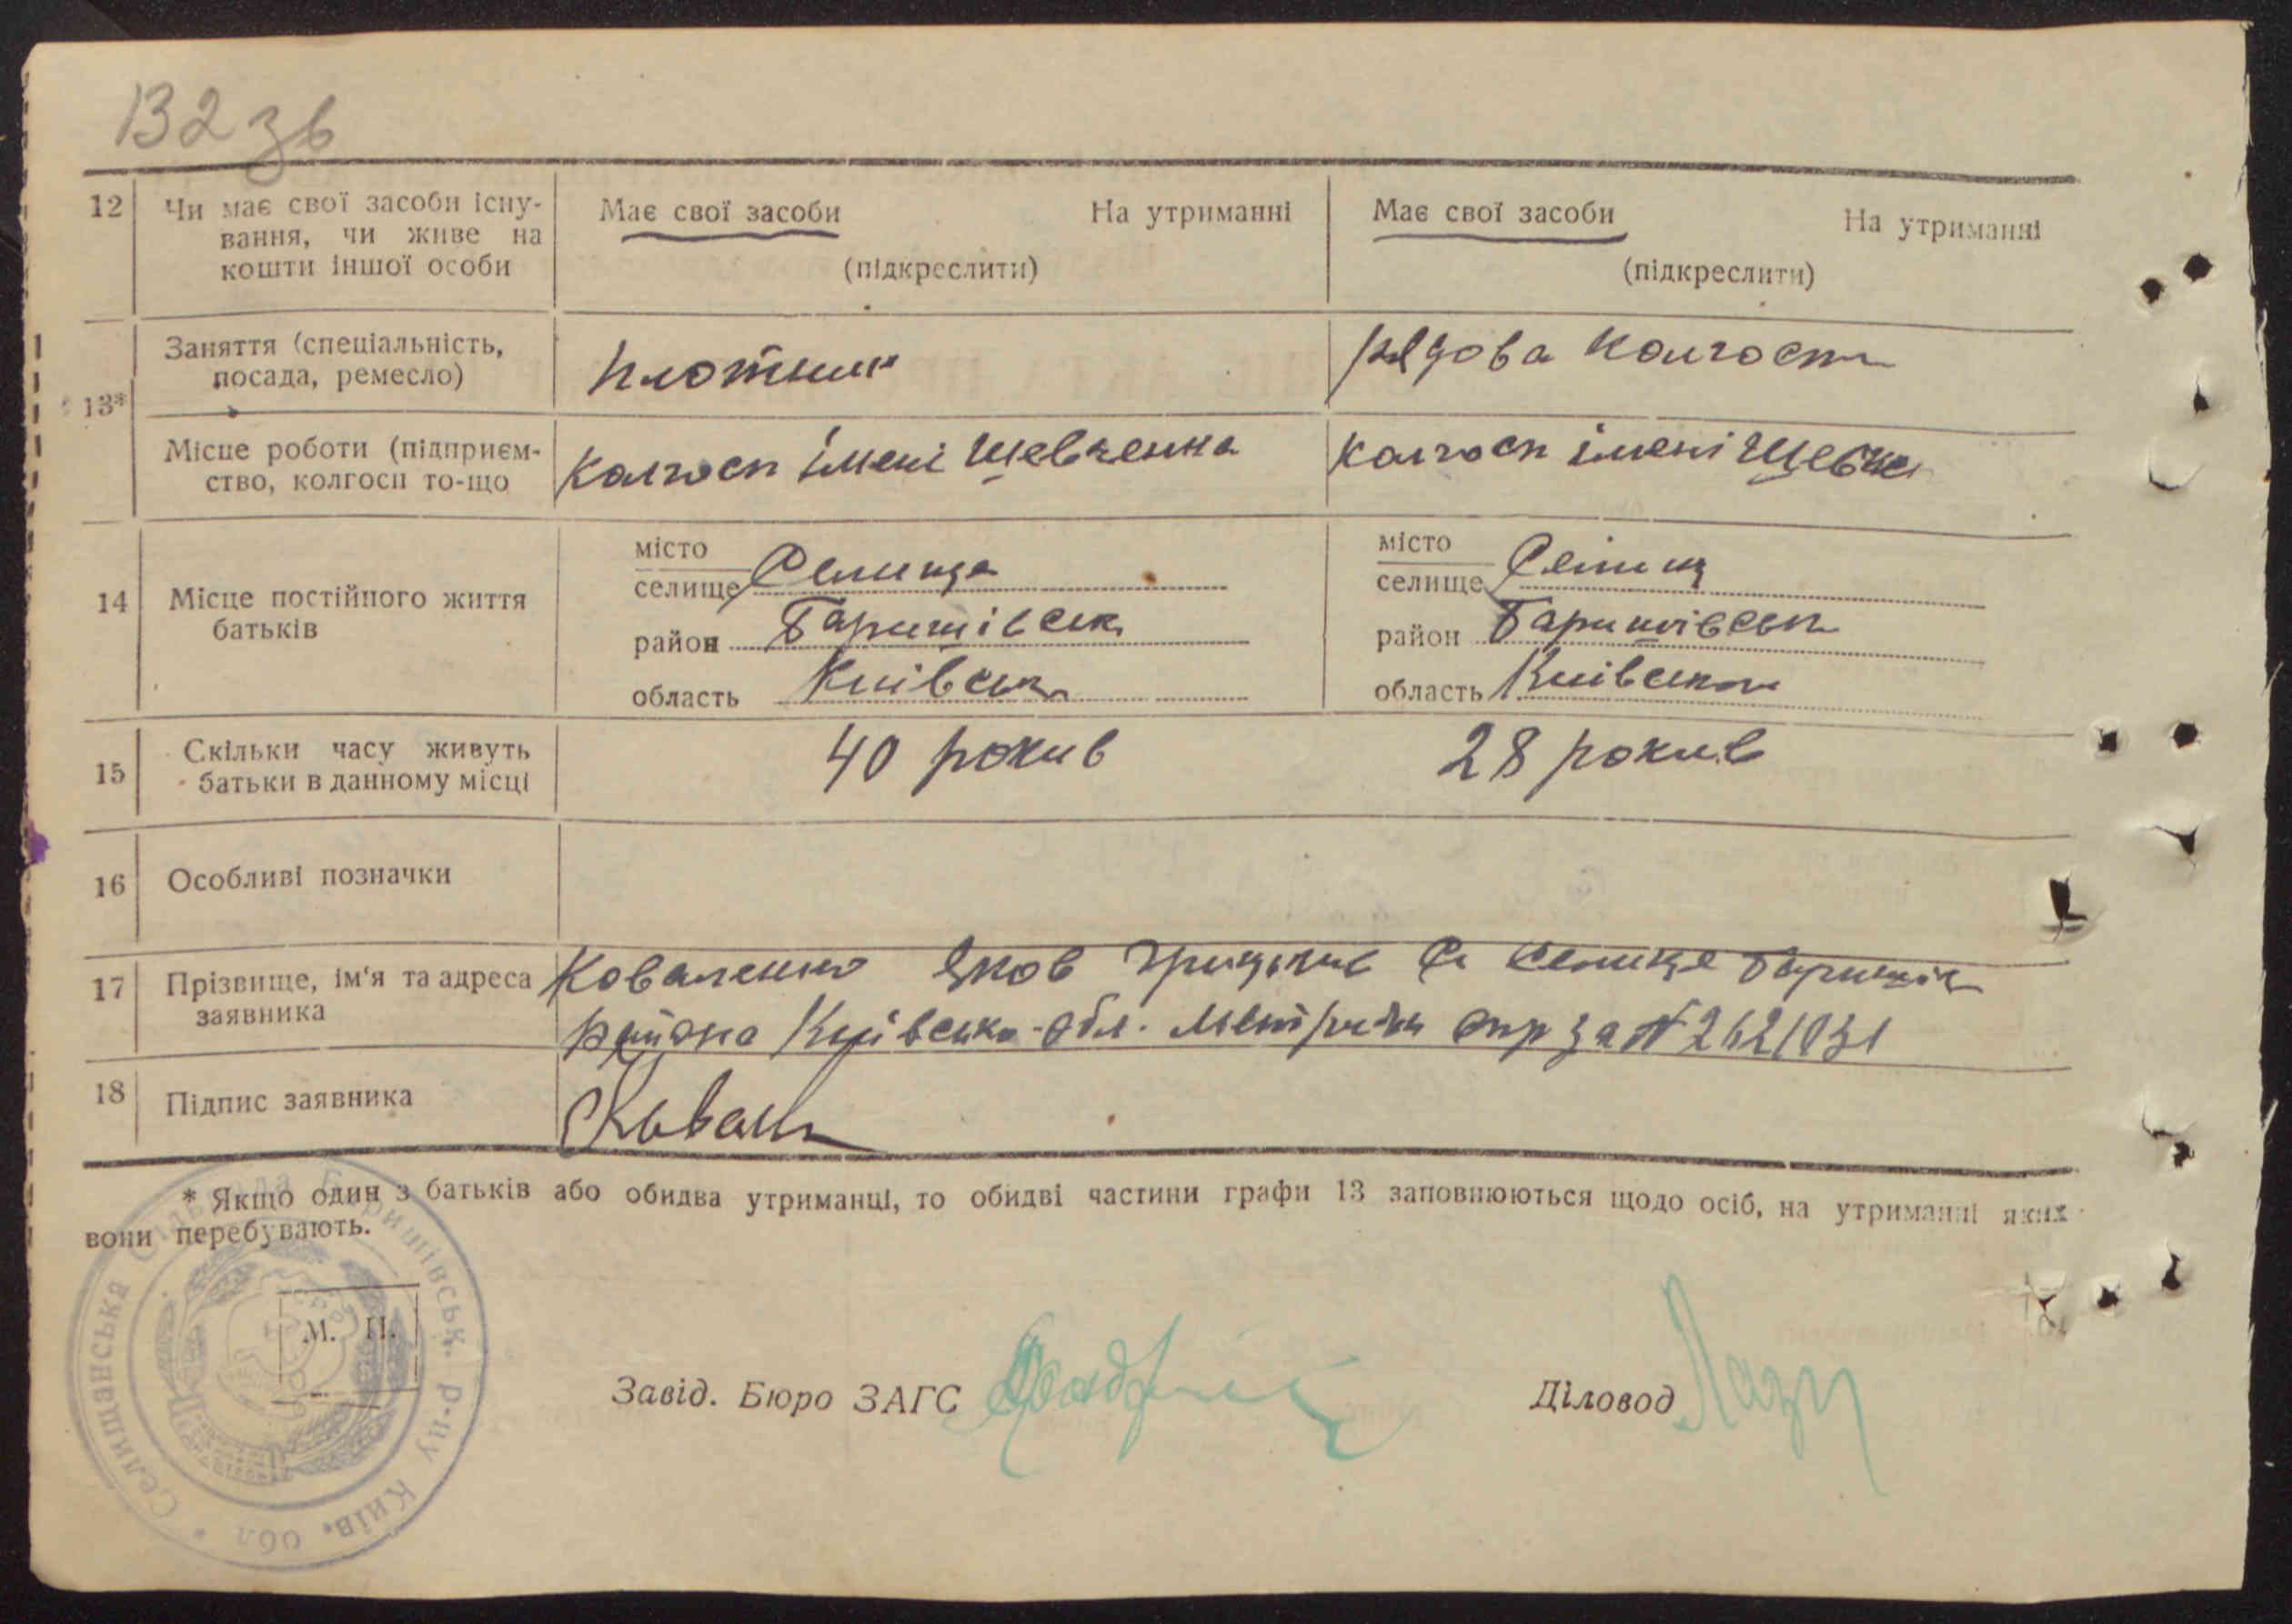 132 зв
12 Чи має свої засоби існу-
вання, чи живе на
кошти іншої особи
Має свої засоби На утриманні
(підкреслити)
Має свої засоби На утриманні
(підкреслити)
13*
Заняття (спеціальність,
посада, ремесло)
плотник
рядова колгосп
Місце роботи (підприєм-
ство, колгосп то-що
колгосп імені Шевченка
колгосп імені Шевче
14 Місце постійного життя
батьків
місто
селище Селище
район Баришівськ
область Київська
місто
селище Селищ
район Баришівськ
область Київська
15 Скільки часу живуть
батьки в данному місці
40 рокив
28 рокив
16 Особливі позначки
17 Прізвище, ім'я та адреса
заявника
Коваленко Яков с Селище Баришів
района Київська обл. за №
18 Підпис заявника
* Якщо один з батьків або обидва утриманці, то обидві частини графи 13 заповнюються щодо осіб, на утриманні яких
вони перебувають.
М. П.
Селищанська Сільрада Баришівськ. р-ну Київ. обл *
Завід. Бюро ЗАГС
Діловод